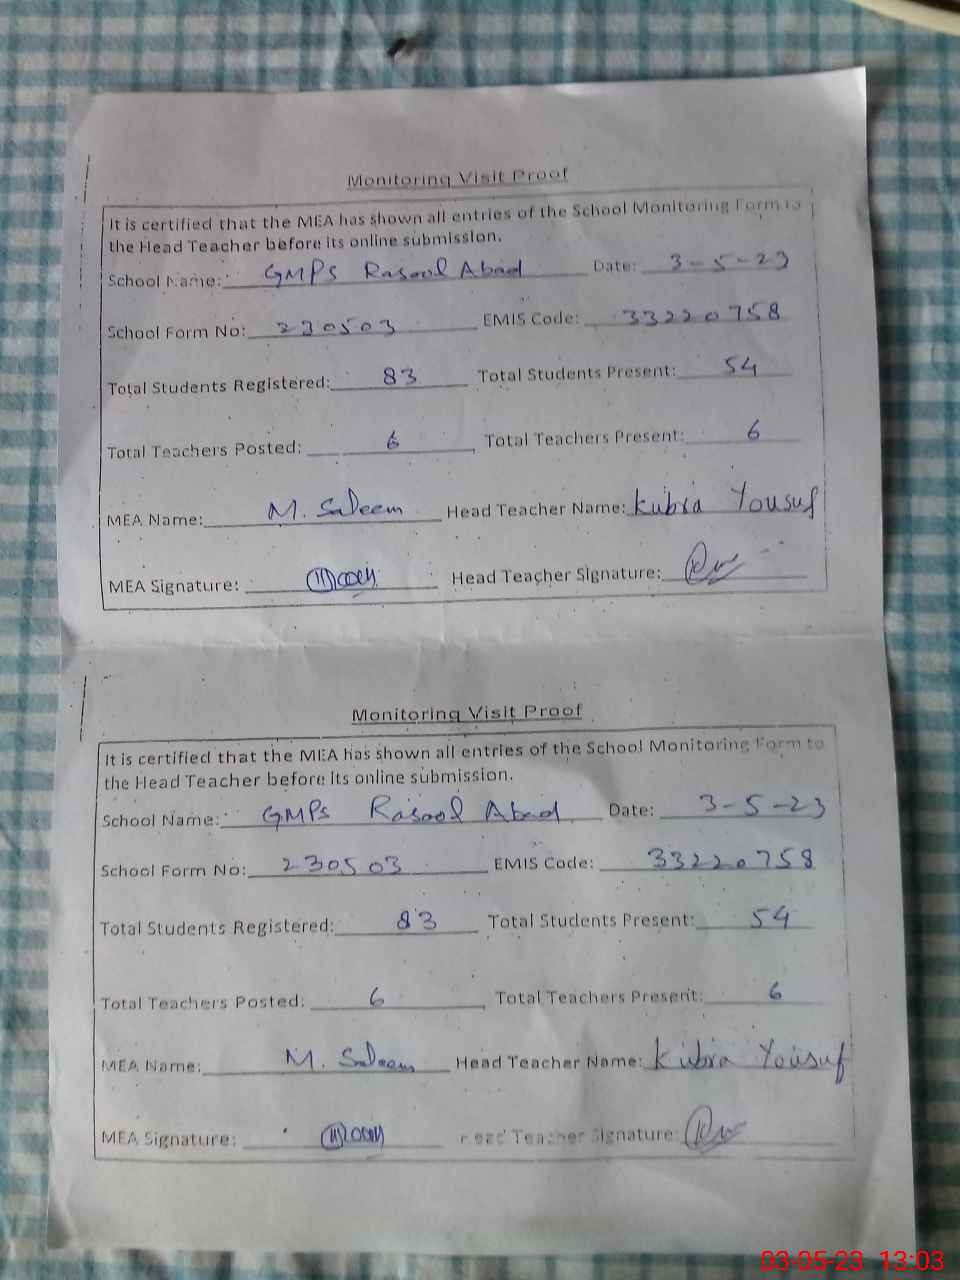 Monitoring Visit Proof
It is certified that the MEA has shown all entries of the School Monitoring Form to
the Head Teacher before its online submission.
School Name: GMPS Rasool Abad Date: 3-5-23
School Form No: 230503 EMIS Code: 33220758
Total Students Registered: 83 Total Students Present: 54
Total Teachers Posted: 6 Total Teachers Present: 6
MEA Name: M. Saleem Head Teacher Name: Kubra Yousuf
MEA Signature: Head Teacher Signature:
Monitoring Visit Proof
It is certified that the MEA has shown all entries of the School Monitoring Form to
the Head Teacher before its online submission.
School Name: GMPS Rasool Abad Date: 3-5-23
School Form No: 230503 EMIS Code: 33220758
Total Students Registered: 83 Total Students Present: 54
Total Teachers Posted: 6 Total Teachers Present: 6
MEA Name: M. Saleem Head Teacher Name: Kubra Yousuf
MEA Signature: Head Teacher Signature:
03-05-23 13:03